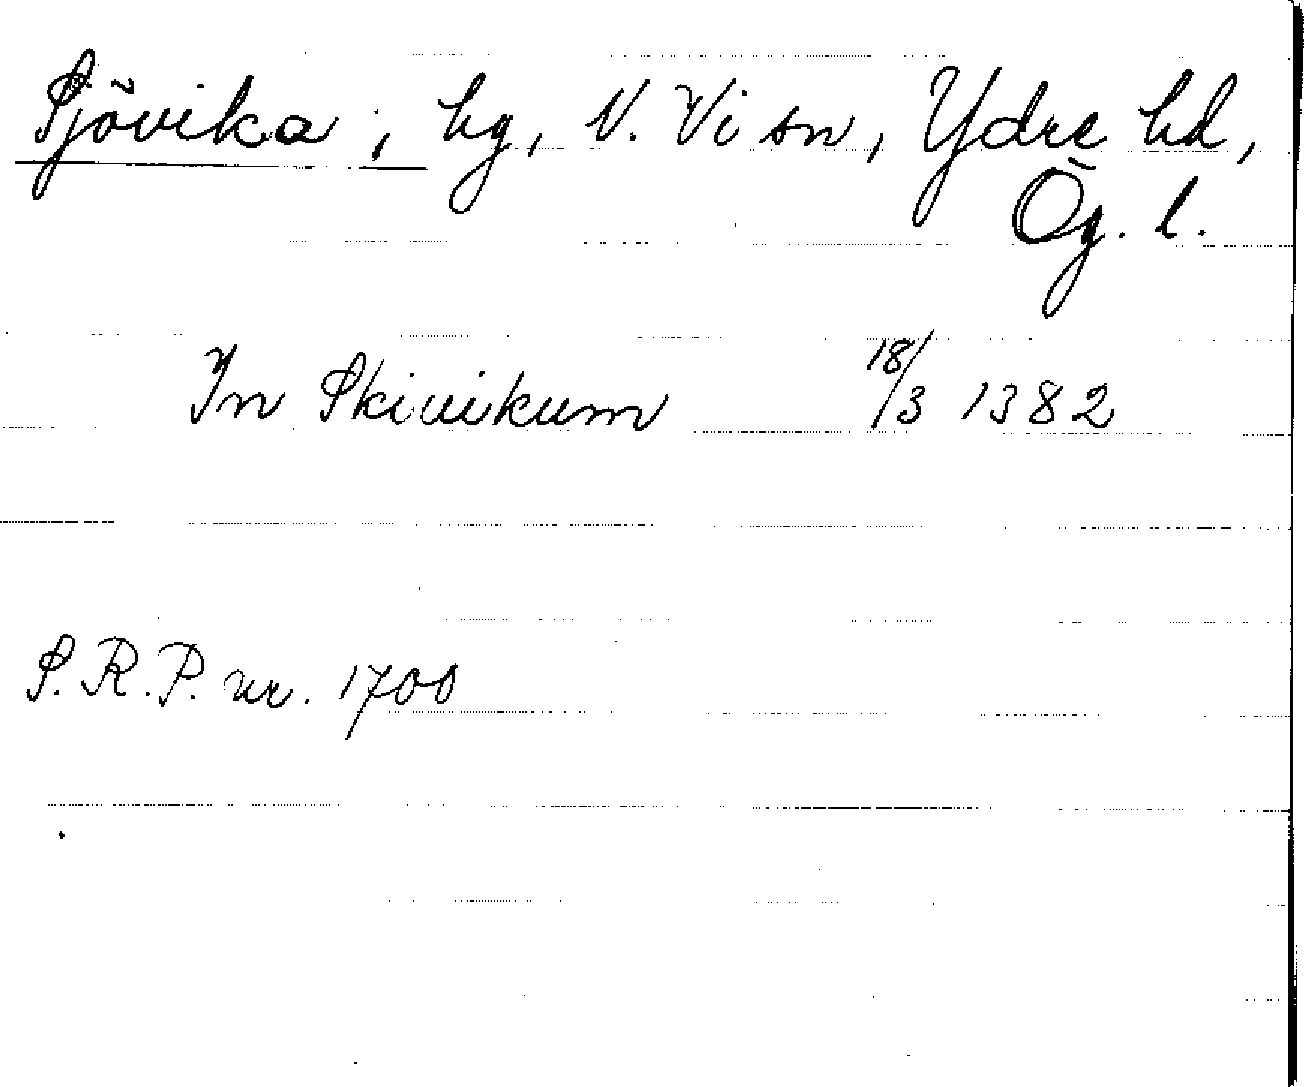 Sjövika, hg, N. Vi sn, Ydre hd,
Ög. l.
In Skiuikum 18/3 1382
S.R.P. nr. 1700